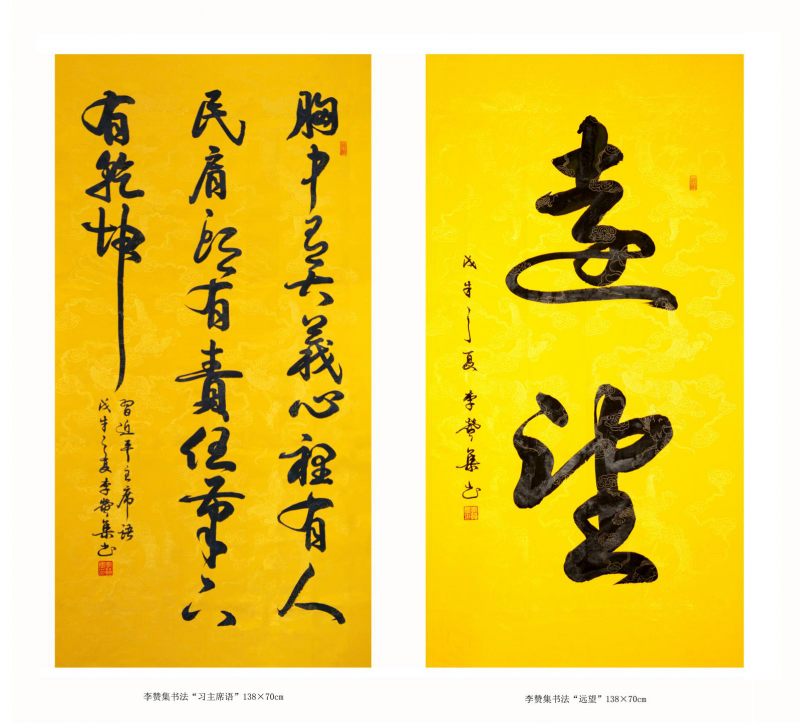 胸中有大義心裡有人
民肩頭有責任筆下
有乾坤
習近平主席語
戊戌之夏李贊集书
遠望
戊戌之夏李贊集书
李赞集书法“习主席语”138×70cm
李赞集书法“远望”138×70cm